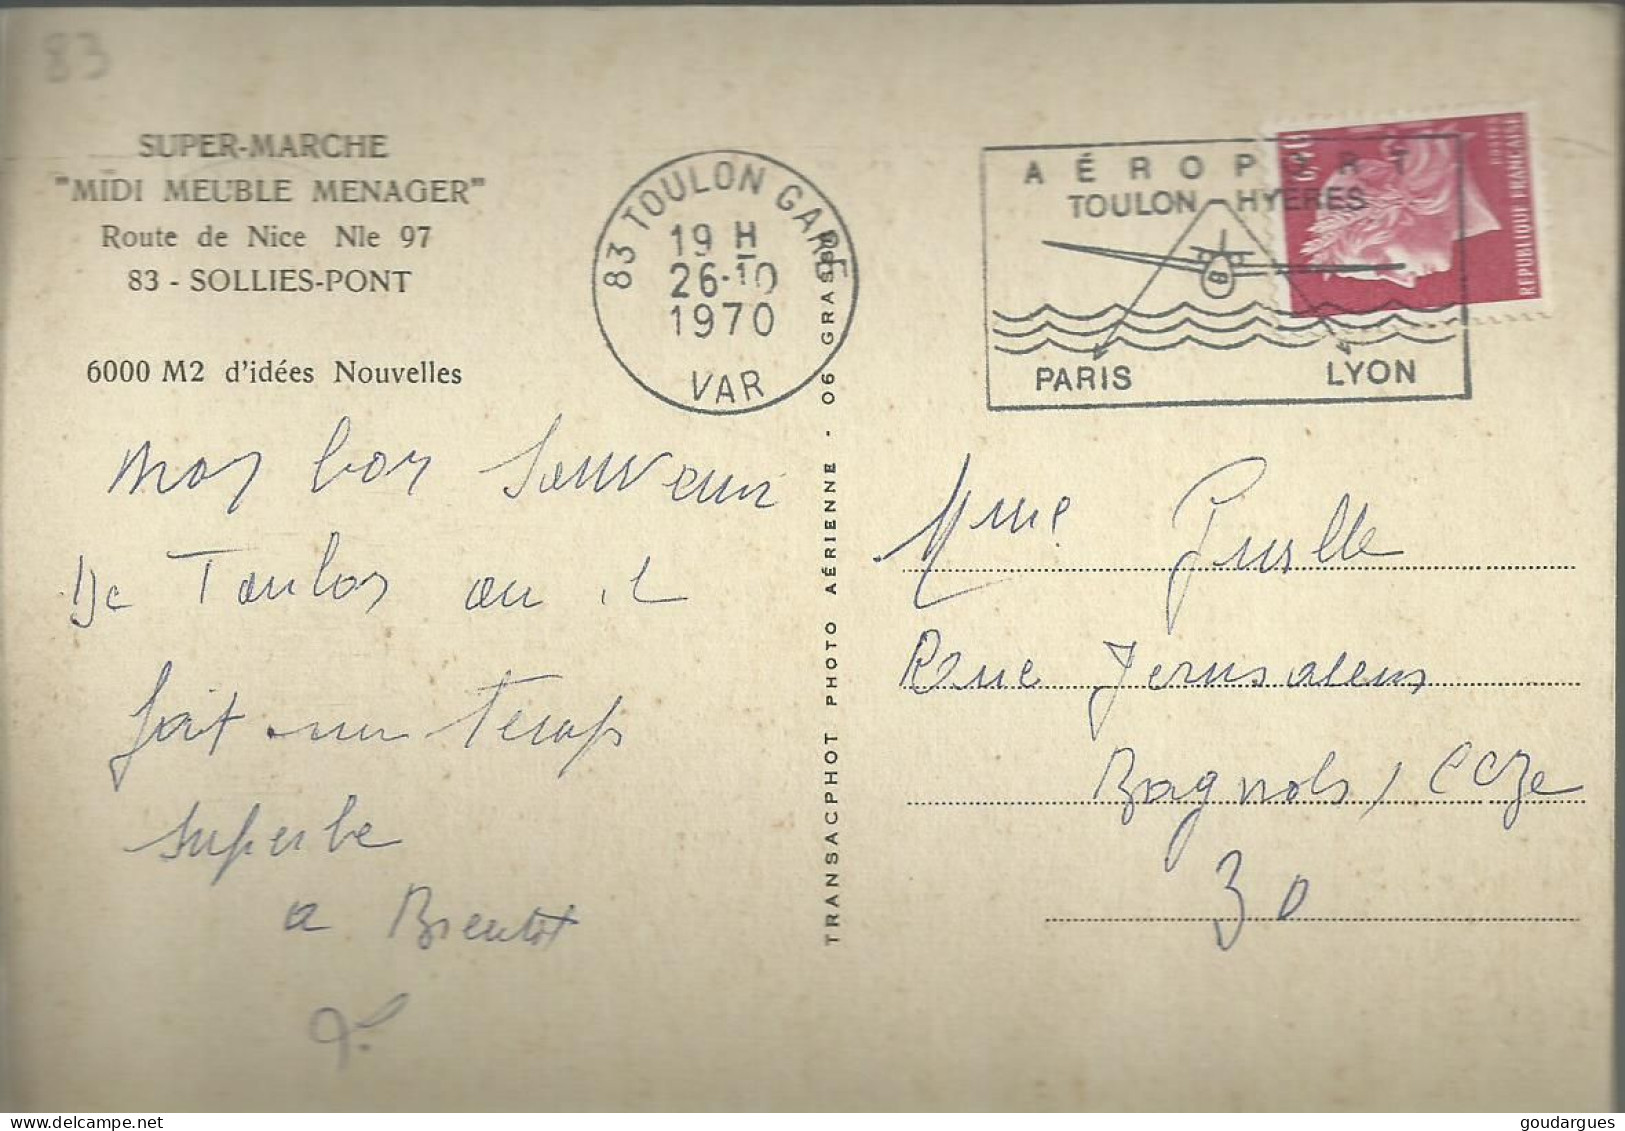 83
SUPER-MARCHE
"MIDI MEUBLE MENAGER"
Route de Nice Nle 97
83 - SOLLIES-PONT
6000 M2 d'idées Nouvelles
83 TOULON GARE
19 H
26-10
1970
VAR
AÉROPORT
TOULON-HYÈRES
PARIS
LYON
0,40
REPUBLIQUE FRANÇAISE
TRANSACPHOT PHOTO AÉRIENNE - 06 GRASSE
mon bon Souvenir
De Toulon ou il
fait un temps
superbe
a Bientot
Mme
Rue Jerusalem
Bagnols / Ceze
30
goudargues